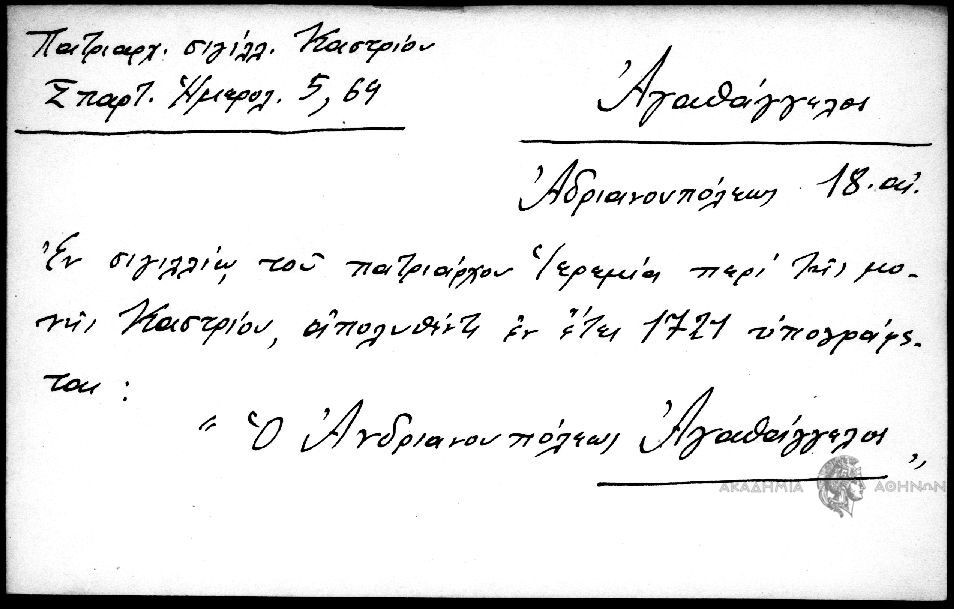 Πατριαρχ. σιγίλλ. Καστρίου
Σπαρτ. Ἡμερολ. 5, 64
Ἀγαθάγγελος
Ἀδριανουπόλεως 18. αἰ.
Ἐν σιγιλλίῳ τοῦ πατριάρχου Ἱερεμία περί τῆς μο-
νῆς Καστρίου, ἀπολυθέντι ἐν ἔτει 1721 ὑπογράφε-
ται :
"Ὁ Ἀνδριανουπόλεως Ἀγαθάγγελος"
ΑΚΑΔΗΜΙΑ ΑΘΗΝΩΝ